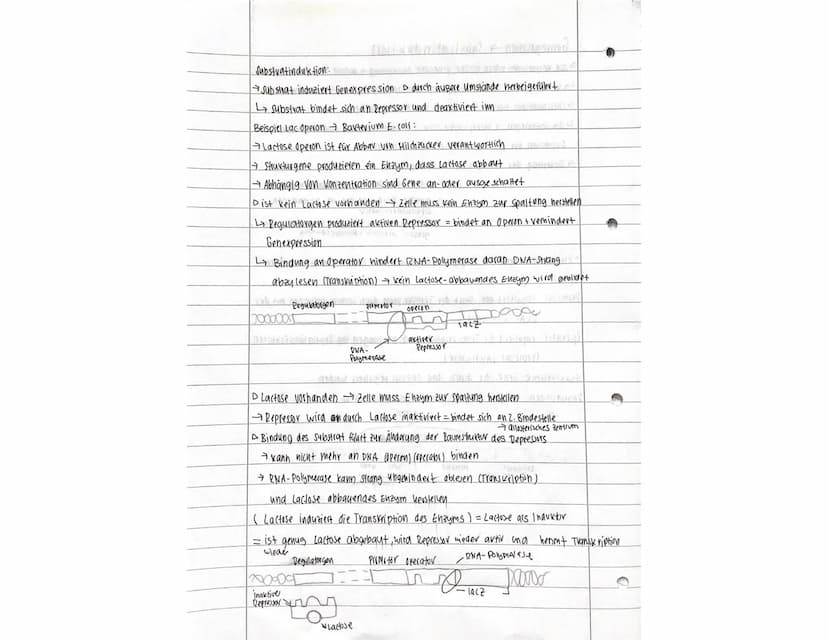 Substratinduktion:
→ Substrat induziert Genexpression ▷ durch äußere Umstände herbeigeführt
↳ Substrat bindet sich an Repressor und deaktiviert ihn
Beispiel Lac Operon → Bakterium E. coli:
→ Lactose Operon ist für Abbau von Milchzucker verantwortlich
→ Strukturgene produzieren ein Enzym, dass Lactose abbaut
→ Abhängig von Konzentration sind Gene an- oder ausgeschaltet
▷ ist kein Lactose vorhanden → Zelle muss kein Enzym zur Spaltung herstellen
↳ Regulatorgen produziert aktiven Repressor = bindet an Operon + vermindert
Genexpression
↳ Bindung an Operator hindert RNA-Polymerase daran DNA-Strang
abzulesen (Transkription) → kein Lactose-abbauendes Enzym wird gebildet
Regulatorgen promotor operon
lacZ
aktiver
Repressor
DNA-
Polymerase
▷ Lactose vorhanden → Zelle muss Enzym zur Spaltung herstellen
→ Repressor wird durch Lactose inaktiviert = bindet sich an 2. Bindestelle
→ allosterisches Zentrum
▷ Bindung des Substrat führt zur Änderung der Raumstruktur des Repressors
→ kann nicht mehr an DNA (Operon) binden
→ RNA-Polymerase kann Strang ungehindert ablesen (Transkription)
und Lactose abbauendes Enzym herstellen
( Lactose induziert die Transkription des Enzyms ) = Lactose als Induktor
= ist genug Lactose abgebaut, wird Repressor wieder aktiv und hemmt Transkription
wieder
Regulatorgen Promoter operator DNA-Polymerase
lacZ
inaktiver
Repressor
Lactose